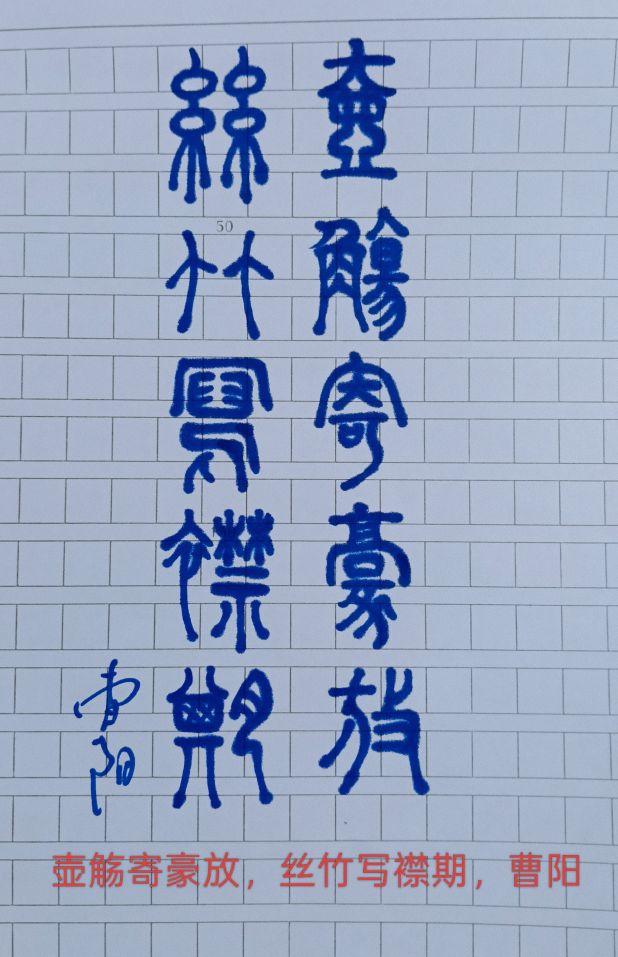 壺觴寄豪放
絲竹寫襟期
曹阳
50
壶觞寄豪放，丝竹写襟期，曹阳